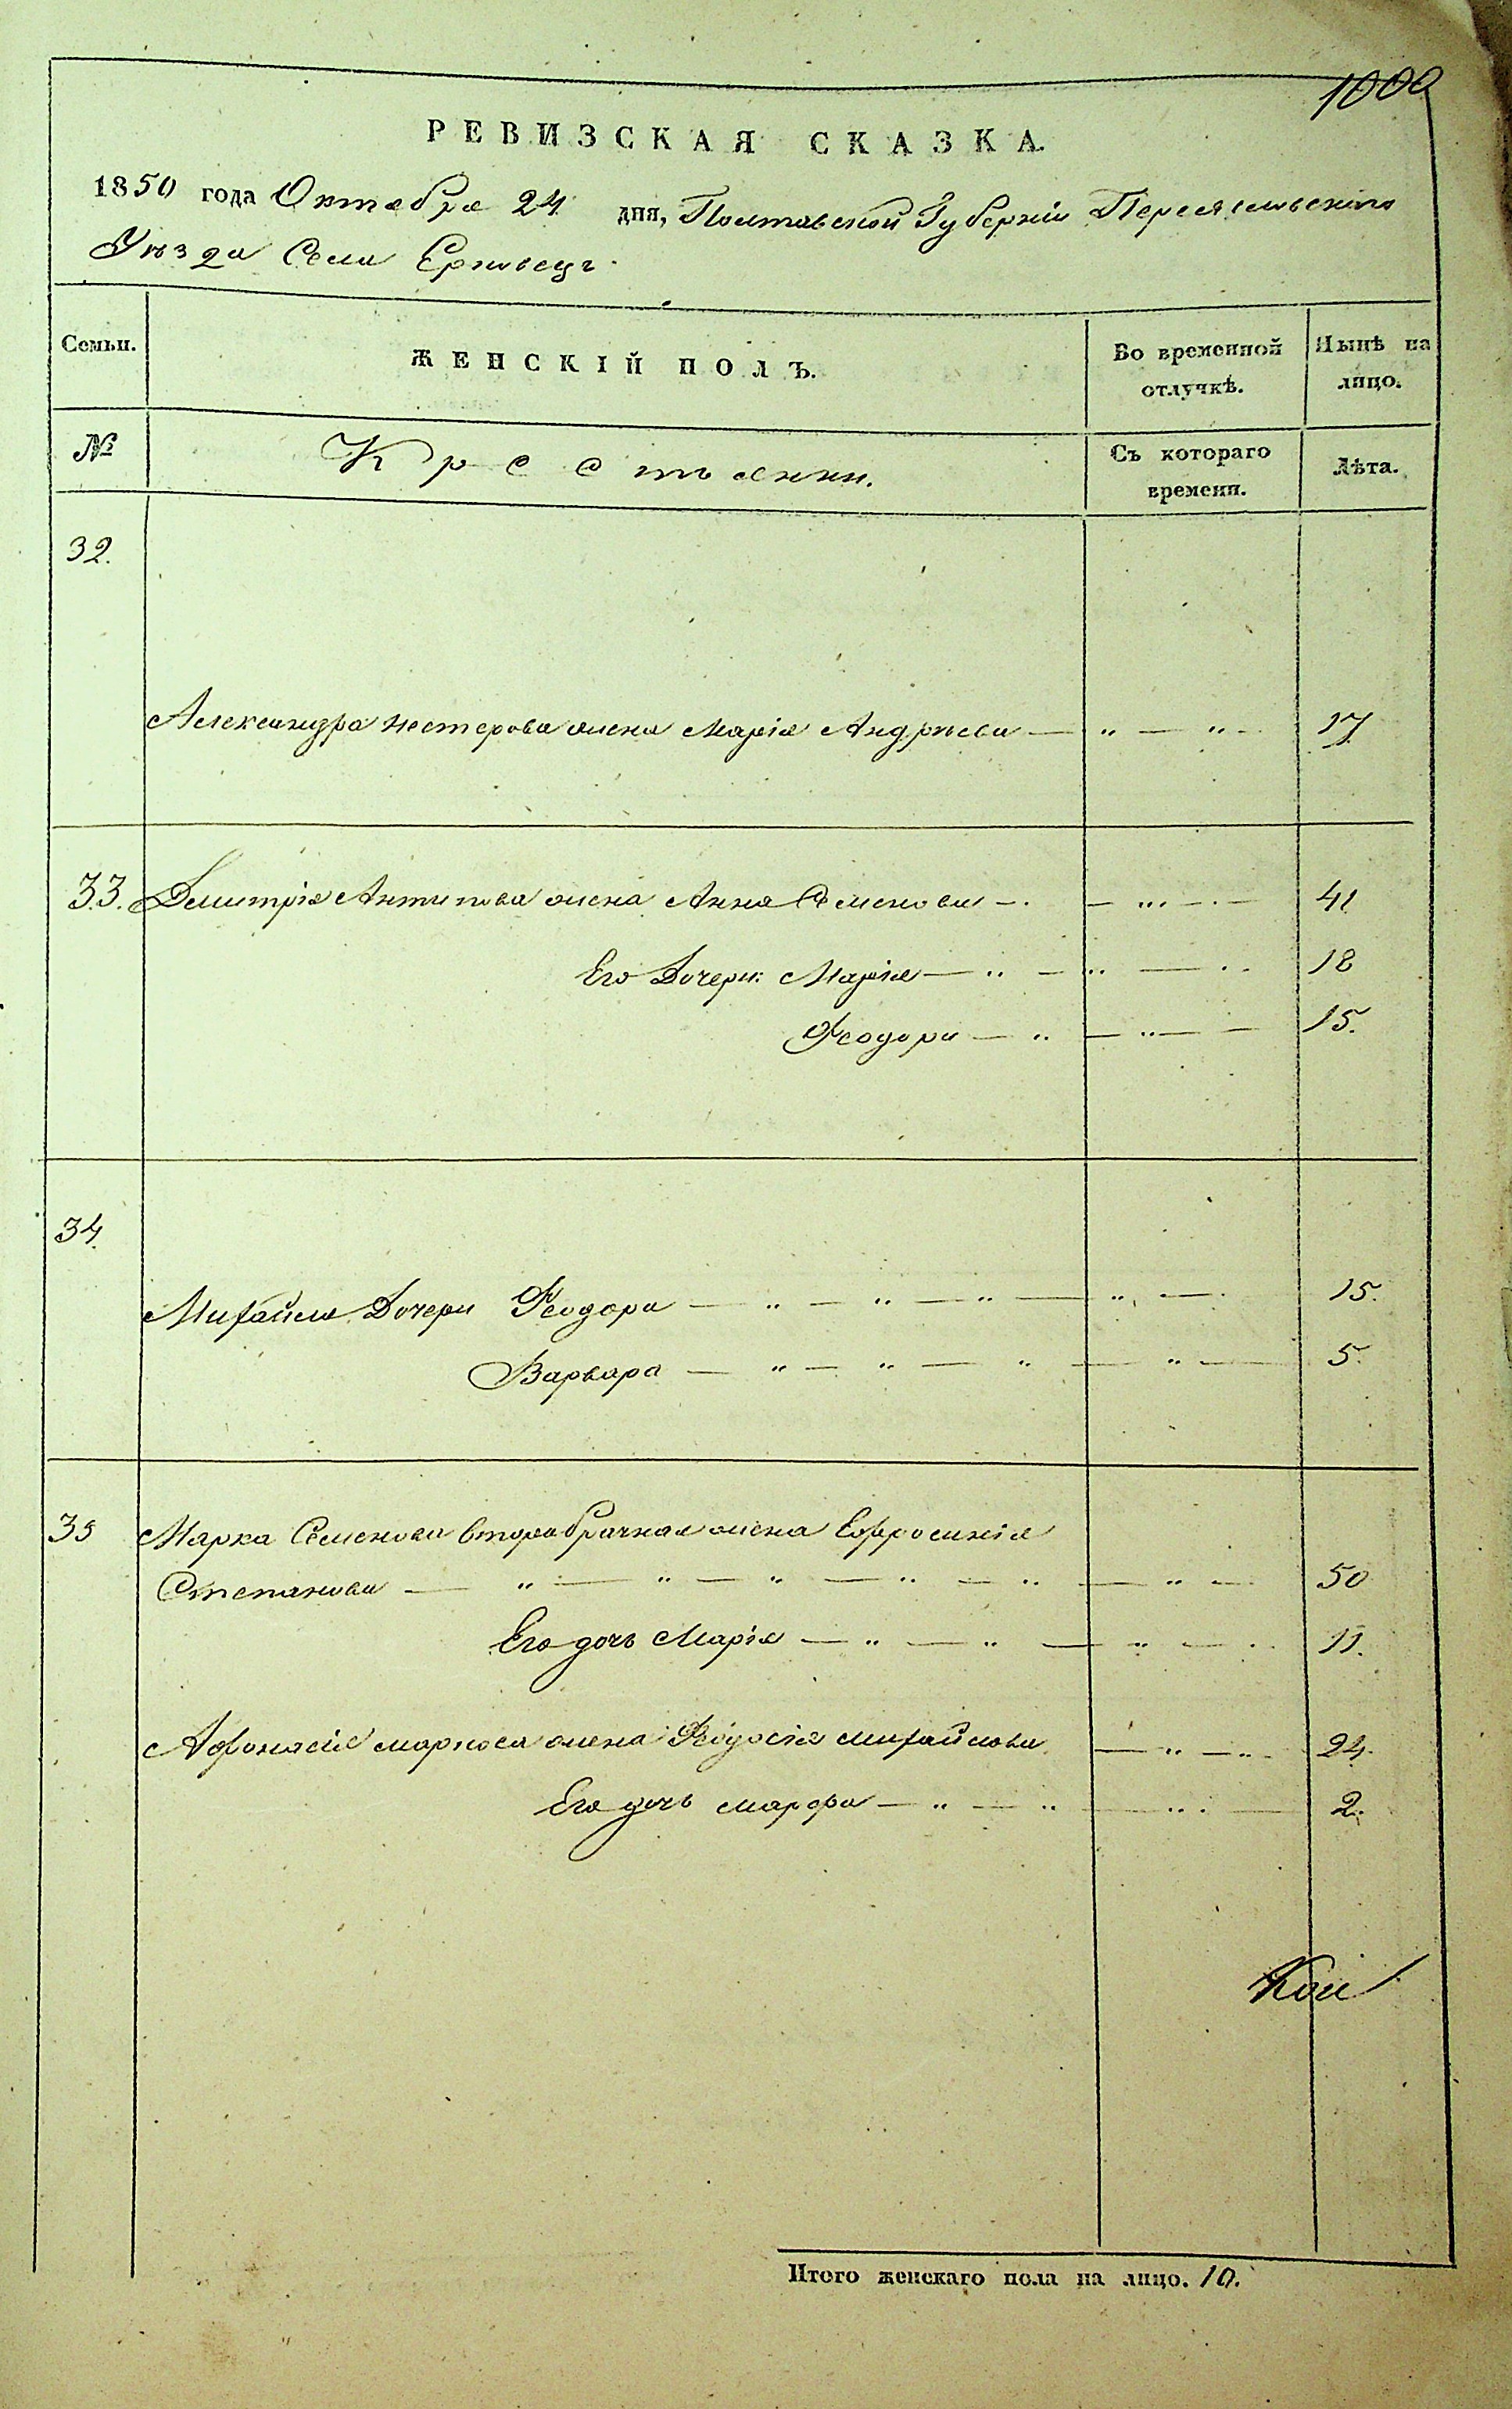 1000
РЕВИЗСКАЯ СКАЗКА.
1850 года Октября 24 дня, Полтавской Губерніи Переяславскаго
Уѣзда Села Ерковецъ
Семьи. ЖЕНСКІЙ ПОЛЪ. Во временной отлучкѣ. Нынѣ на лицо.
№ Крестьянки. Съ котораго времени. Лѣта.
32.
Александра Нестерова жена Марія Андрѣева — " — " — 17
33. Дмитрія Антипова жена Анна Семенова — 41
Его Дочери: Марія — 18
Феодора — 15.
34.
Михайла Дочери Феодора — 15.
Варвара — 5.
35 Марка Семенова второбрачная жена Ефросинія
Степанова — 50
Его дочь Марія — 11.
Афонасія маркова жена Феодосія михайлова — 24.
Его дочь марфа — 2.
Итого женскаго пола на лицо. 10.